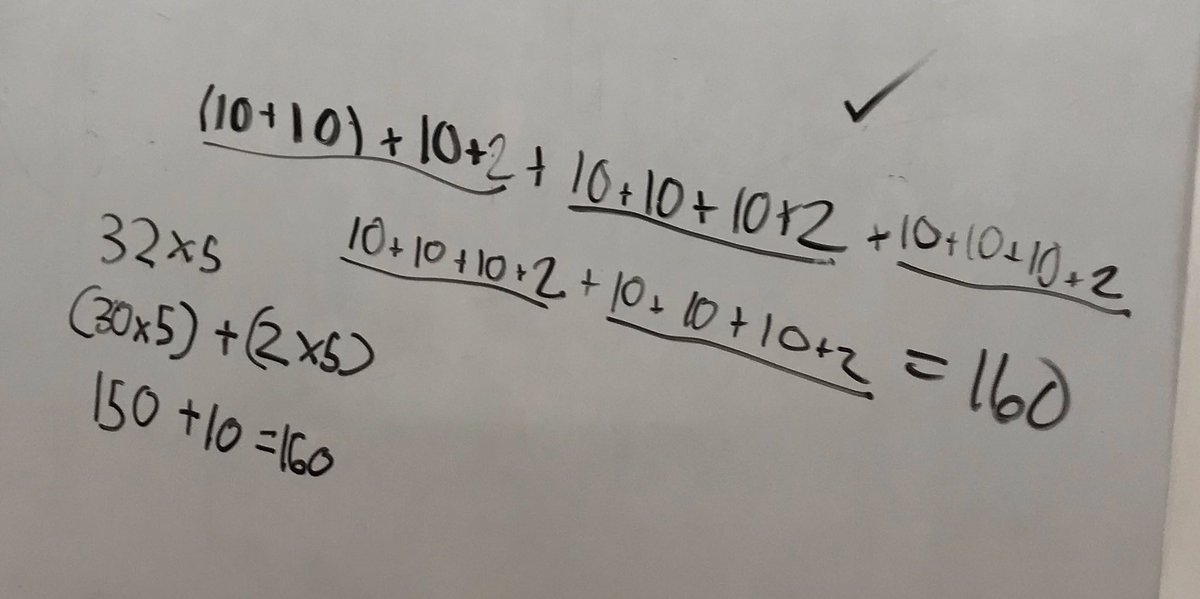 (10+10)+10+2+10+10+10+2+10+10+10+2
10+10+10+2+10+10+10+2=160
32×5
(30×5)+(2×5)
150+10=160